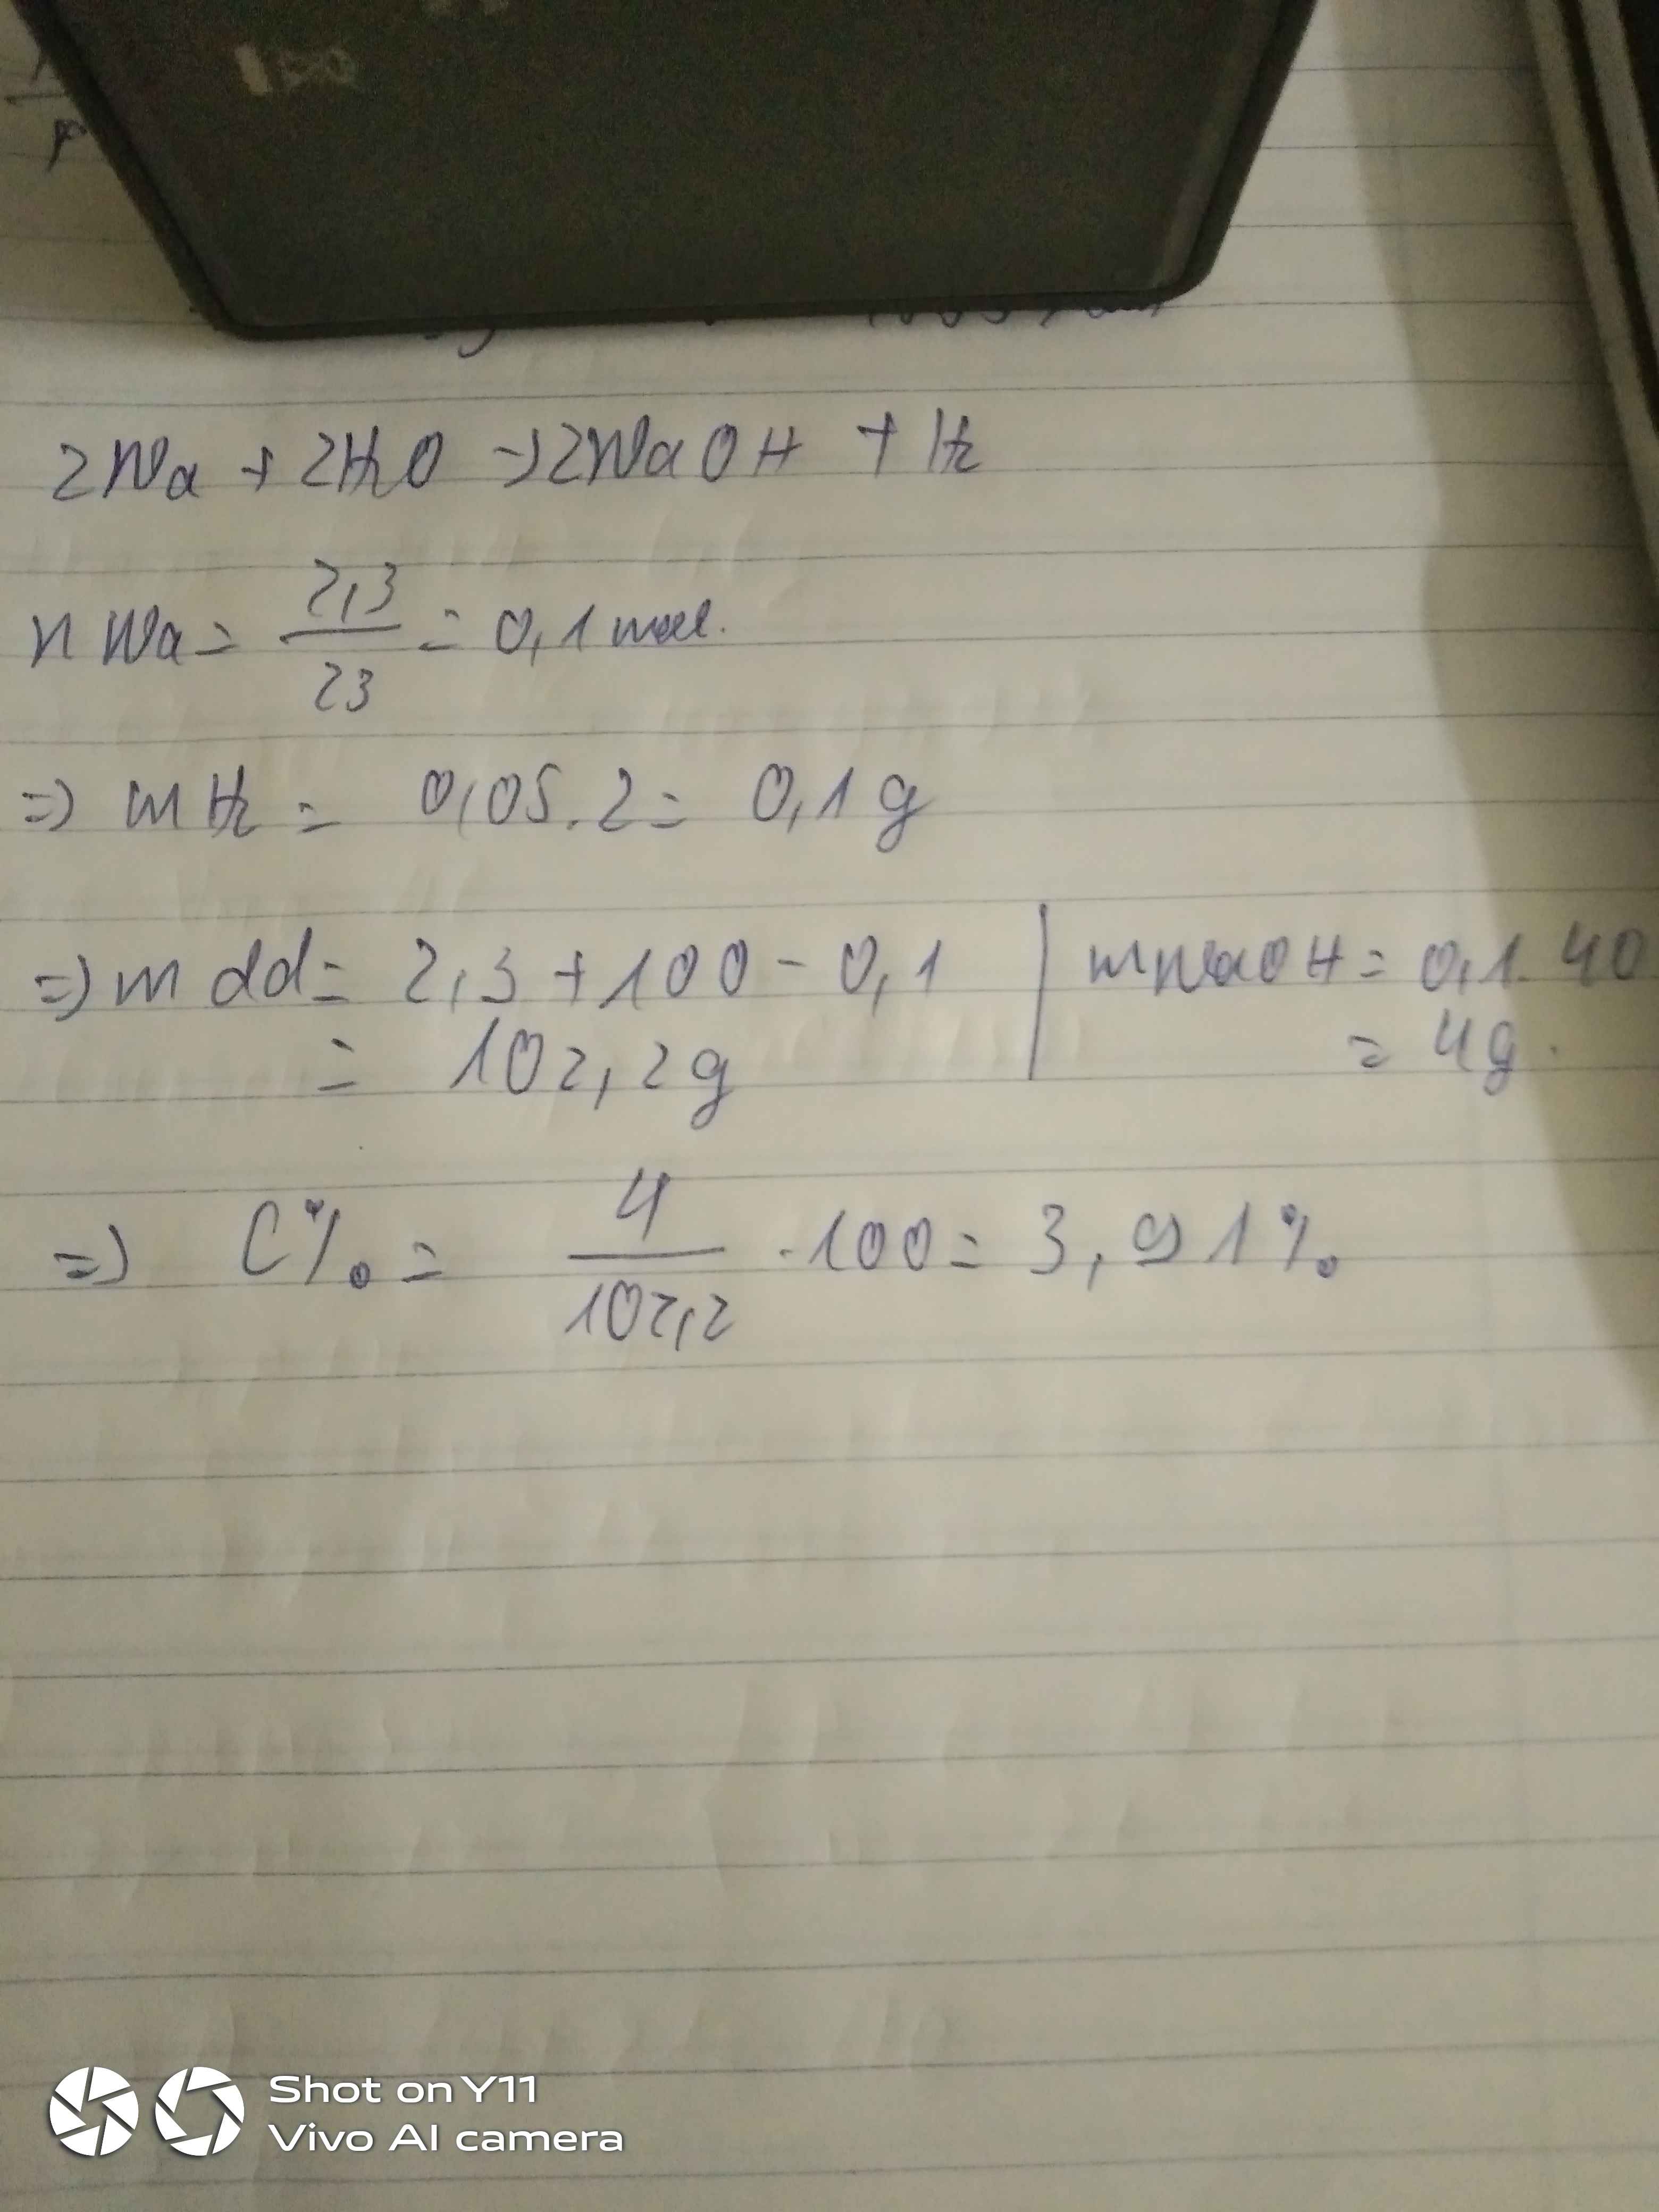 2Na + 2H2O → 2NaOH + H2
n Na = 2,3 / 23 = 0,1 mol.
=> m H2 = 0,05.2 = 0,1 g
=> m dd = 2,3 + 100 - 0,1 | mNaOH = 0,1.40
= 102,2g = 4g.
=> C% = 4 / 102,2 .100 = 3,91%
Shot on Y11
Vivo AI camera